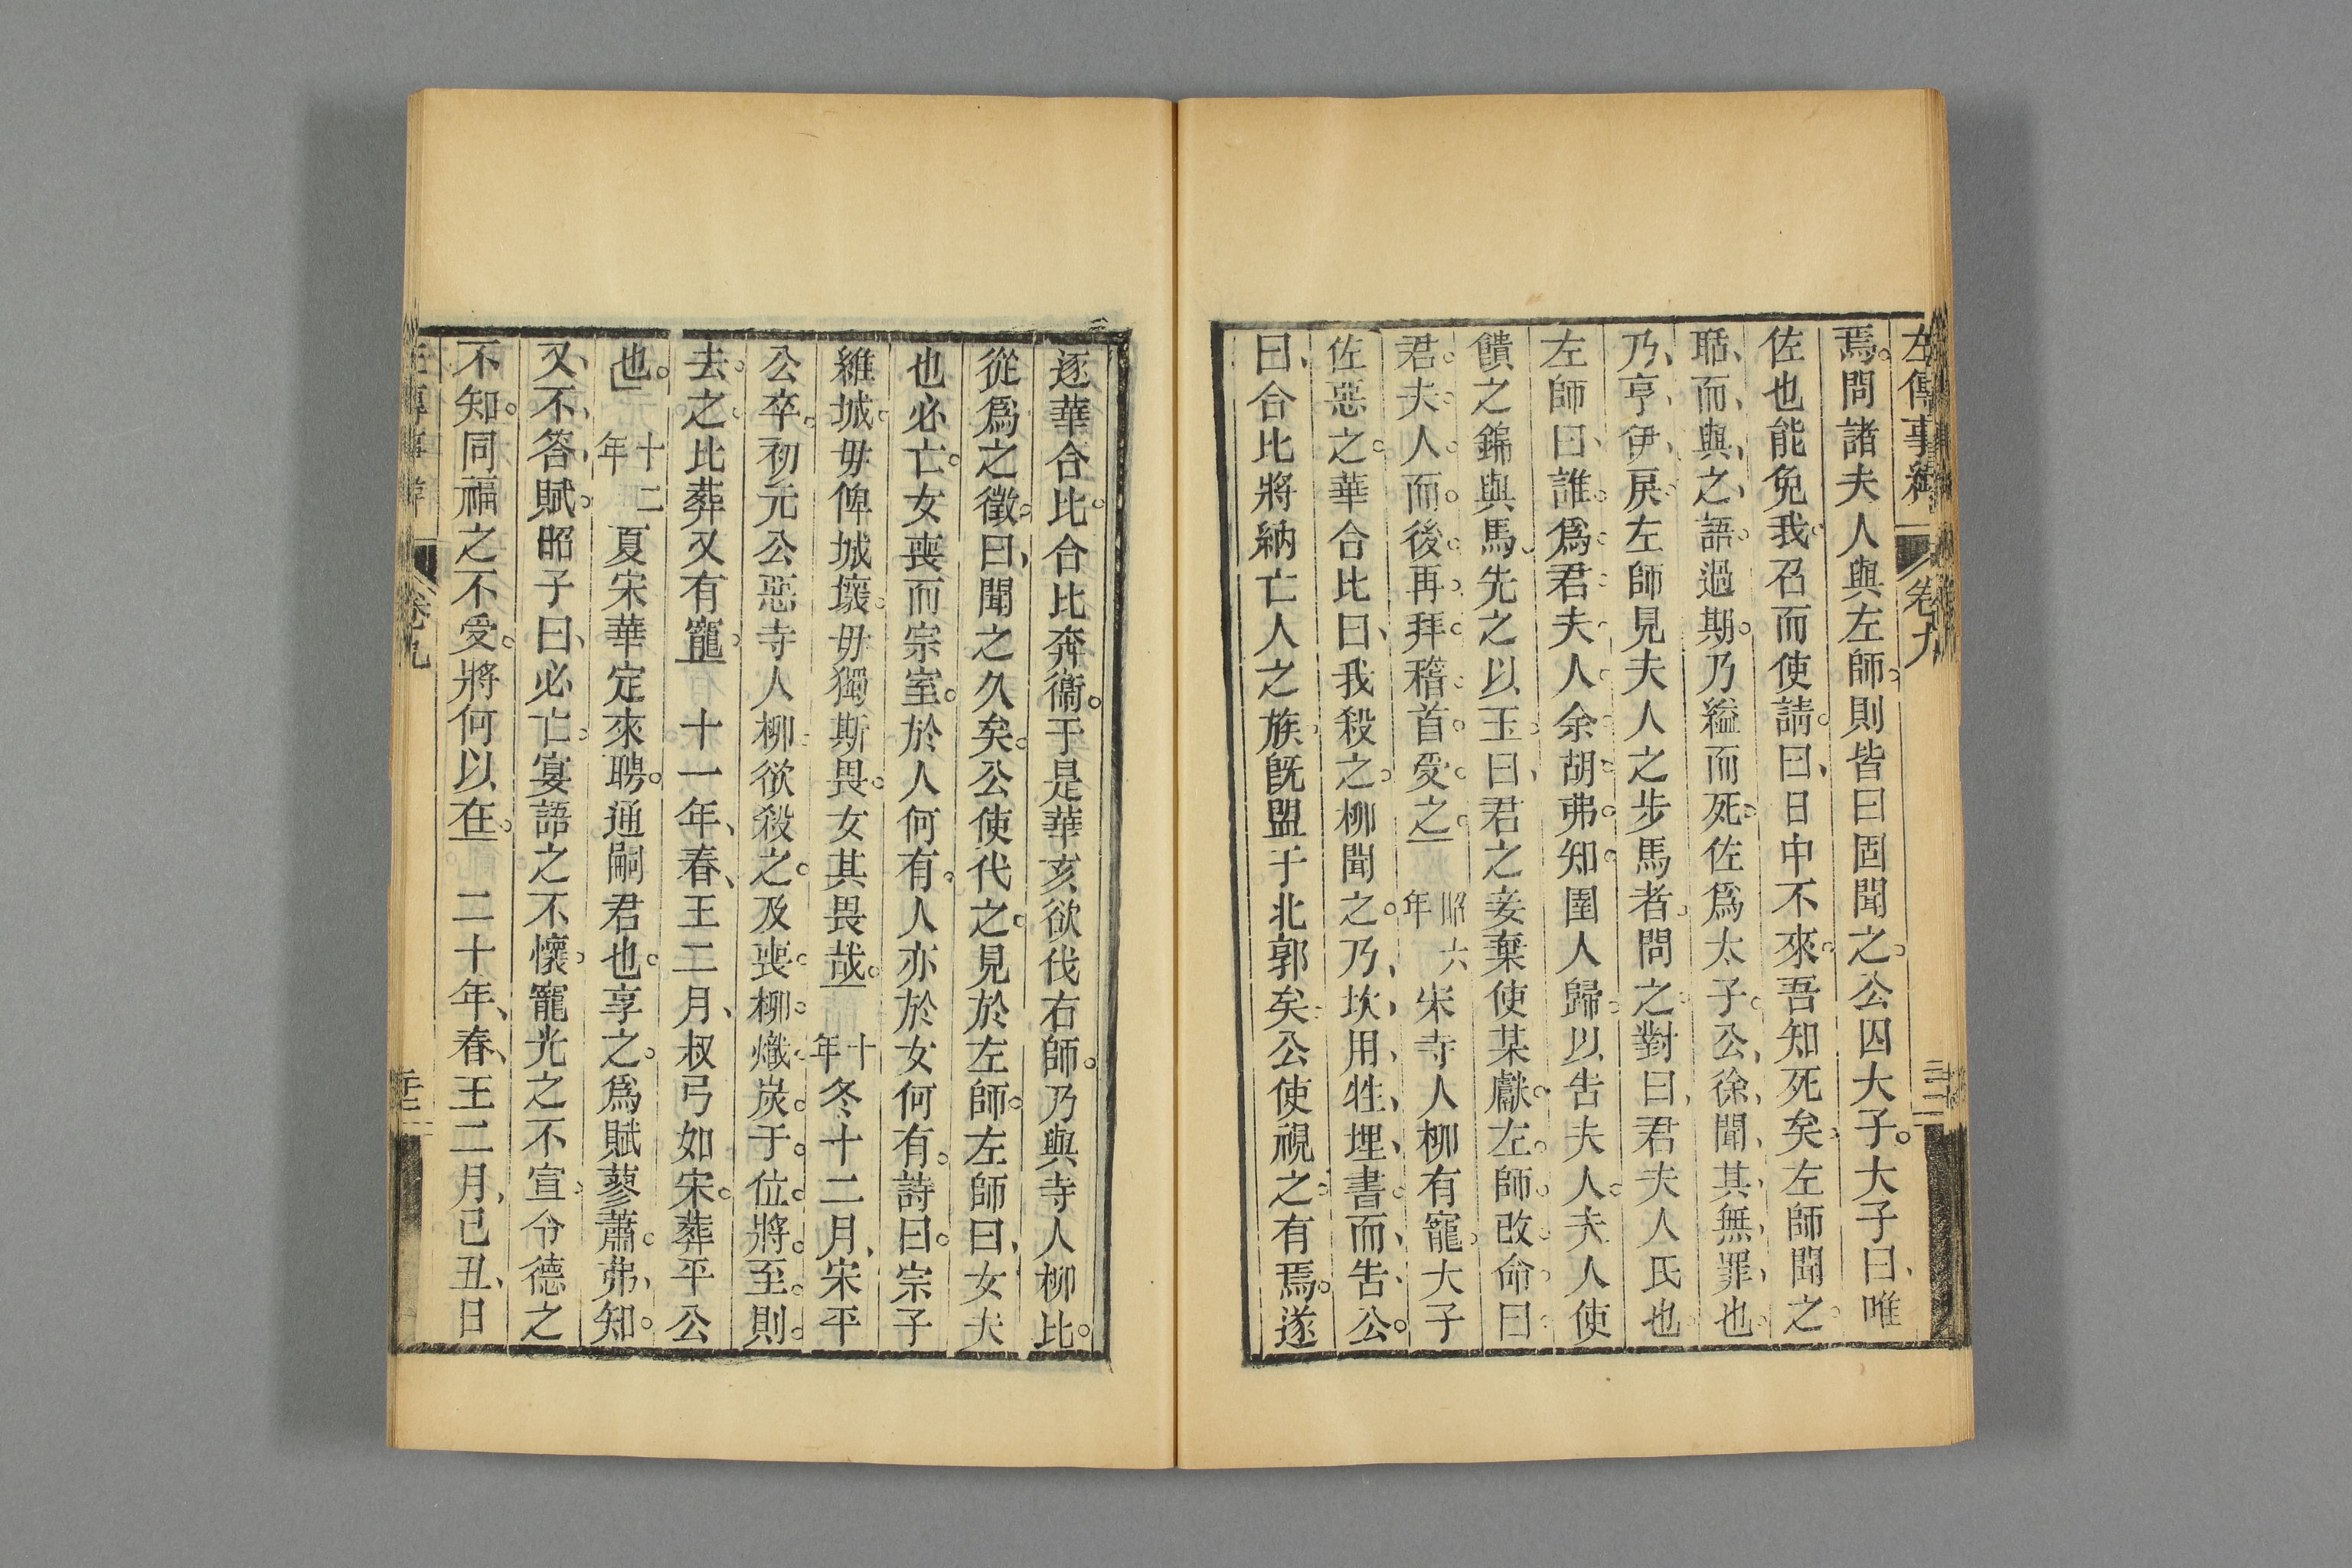 左傳事緯 卷九
焉。問諸夫人與左師。則皆曰固聞之。公囚大子。大子曰、唯
佐也能免我。召而使請。曰、日中不來。吾知死矣。左師聞之。
聒、而、與、之、語。過期。乃縊而死。佐爲太子。公、徐、聞、其、無、罪、也、
乃、亨、伊、戾。左師見夫人之步馬者。問之。對曰、君夫人氏也。
左師曰、誰。爲。君。夫。人。余。胡。弗。知。圉人歸。以告夫人。夫人使
饋之錦與馬。先之以玉。曰、君之妾棄使某獻。左。師。改。命。曰。
君。夫。人。而。後。再。拜。稽。首。受。之。昭六年宋寺人柳有寵。大子
佐惡之。華合比曰、我殺之。柳聞之。乃、坎、用、牲、埋、書。而、告、公。
曰、合比將納亡人之族。旣盟于北郭矣。公使視之。有焉。遂
逐華合比。合比奔衞。于是華亥欲伐右師。乃與寺人柳比。
從爲之徵。曰、聞之久矣。公使代之。見於左師。左師曰、女夫
也必亡。女喪而宗室。於人何有。人亦於女何有。詩曰。宗子
維城。毋俾城壞。毋獨斯畏。女其畏哉。十年冬十二月、宋平
公卒。初元公惡寺人柳。欲殺之。及喪。柳。熾。炭。于。位。將。至。則。
去。之。比葬又有寵。十一年、春、王二月、叔弓如宋。葬平公
也。十二年夏宋華定來聘。通嗣君也。享之。爲賦蓼蕭。弗、知。
又、不、答、賦。昭子曰、必亡。宴語之不懷。寵光之不宣。令德之
不知。同福之不受。將何以在。二十年、春、王二月、己丑、日
卷九